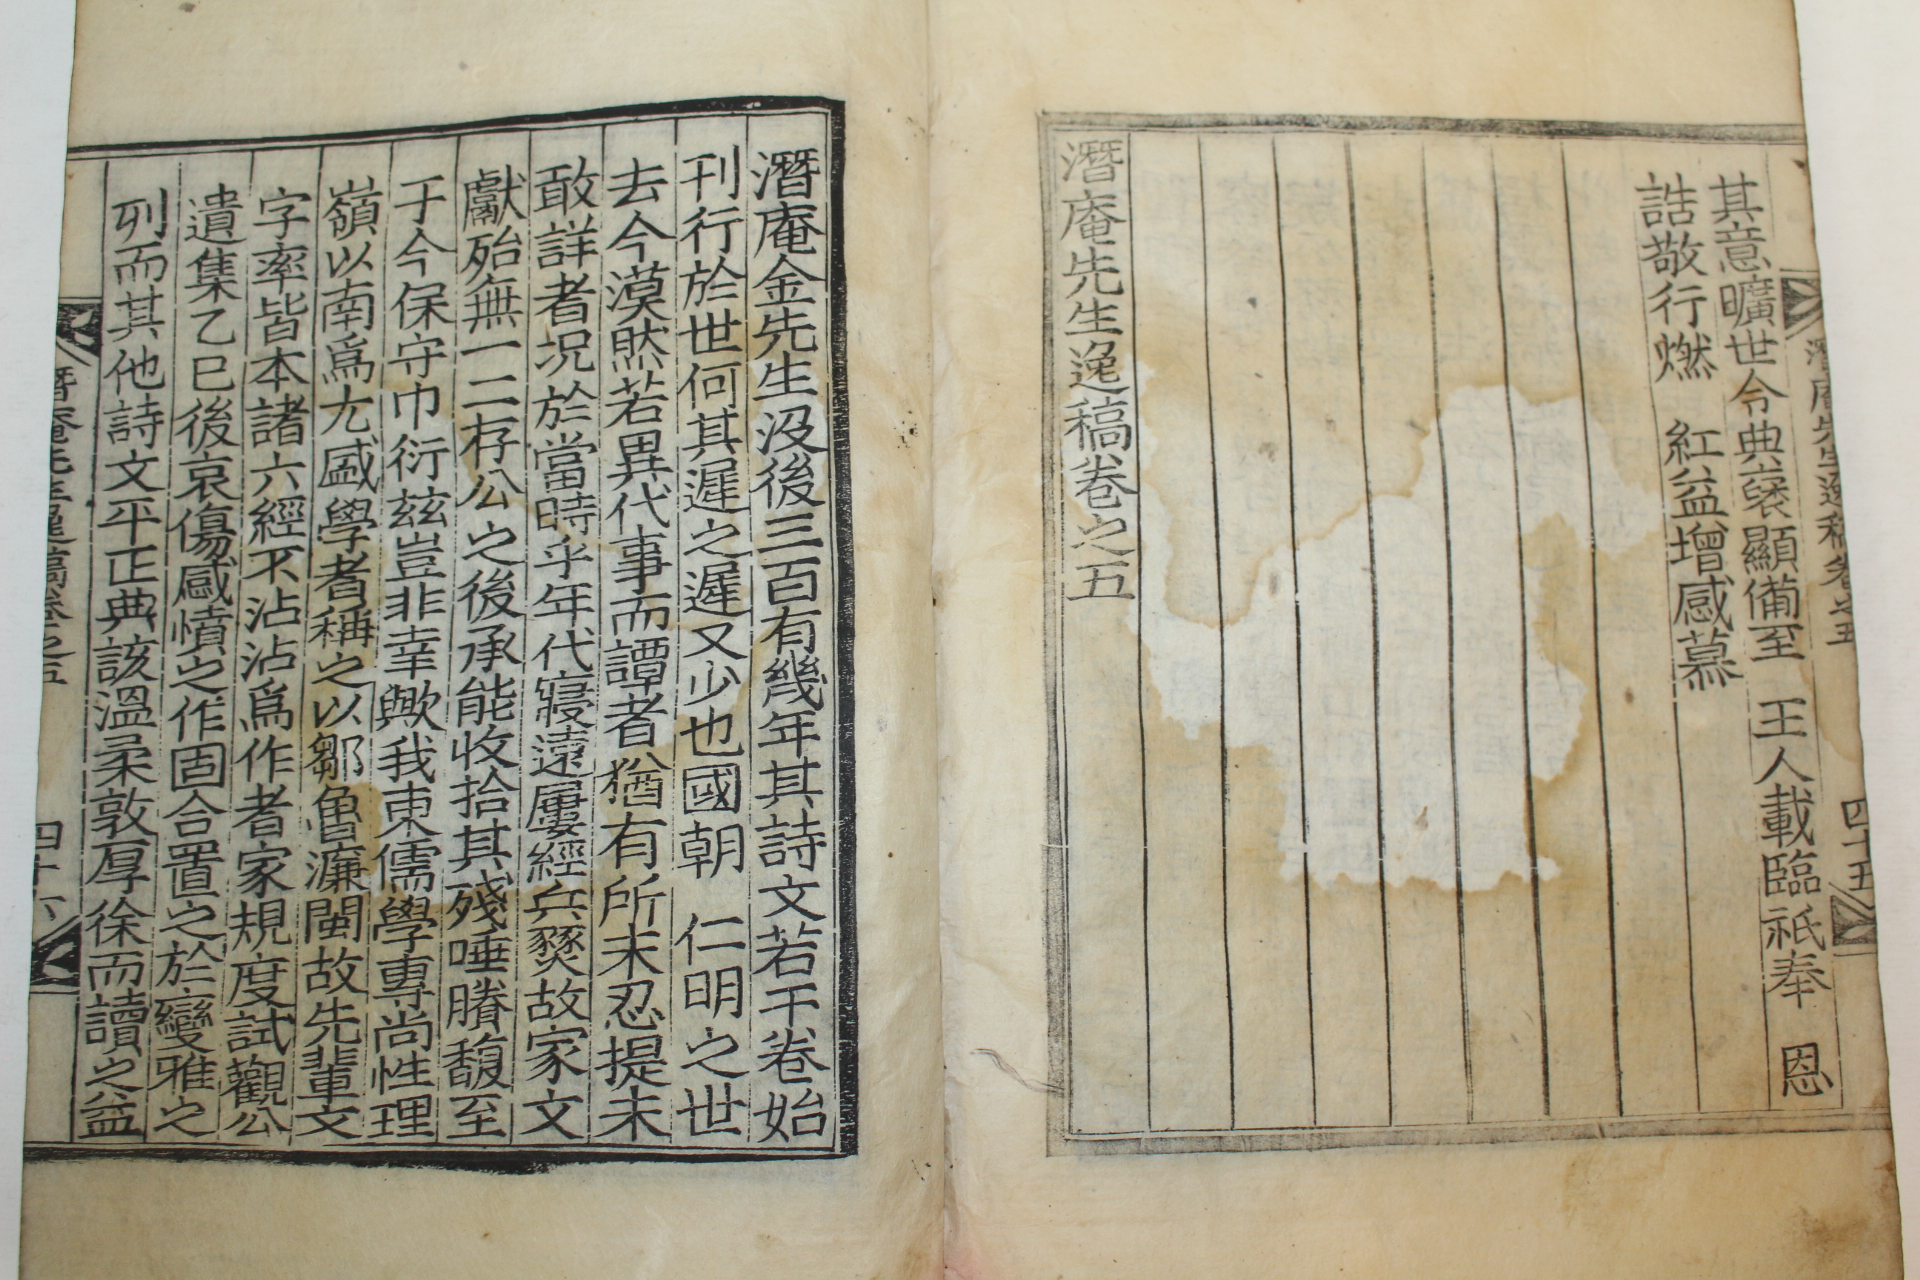 潛庵先生逸稿卷之五
四十五
其意曠世令典褎顯備至 王人載臨祇奉 恩
誥敬行燃 紅益增感慕
潛庵先生逸稿卷之五
潛庵金先生沒後三百有幾年其詩文若干卷始
刊行於世何其遲之遲又少也國朝 仁明之世
去今漠然若異代事而譚者猶有所未忍提未
敢詳者況於當時乎年代寢遠屢經兵燹故家文
獻殆無一二存公之後承能收拾其殘唾賸馥至
于今保守巾衍玆豈非幸歟我東儒學專尚性理
嶺以南爲尤盛學者稱之以鄒魯濂閩故先輩文
字率皆本諸六經不沾沾爲作者家規度試觀公
遺集乙巳後哀傷感憤之作固合置之於變雅之
列而其他詩文平正典該溫柔敦厚徐而讀之益
潛庵先生逸稿卷之五
四十六